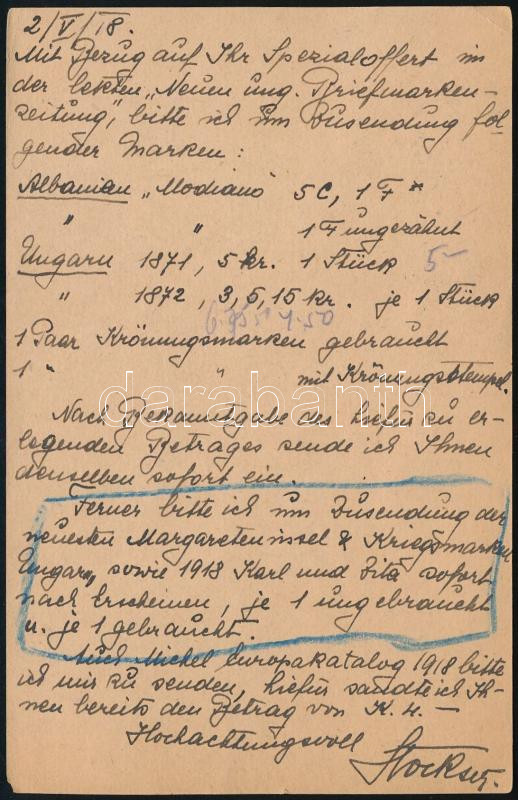 2/V/18.
Mit Bezug auf Ihr Spezialoffert in
der letzten „Neuen ung. Briefmarken-
zeitung", bitte ich um Zusendung fol-
gender Marken:
Albanien „Modiano" 5 C, 1 F *
" " 1 F ungezähnt
Ungarn 1871, 5 kr. 1 Stück 5-
" 1872, 3, 5, 15 kr. je 1 Stück
1 Paar Krönungsmarken gebraucht
1 " " mit Krönungsstempel.
darabanth
Nach Bekanntgabe des hiefür zu er-
legenden Betrages sende ich Ihnen
denselben sofort ein.
Ferner bitte ich um Zusendung der
neuesten Margareteninsel & Kriegsmarken
Ungarn, sowie 1918 Karl und Zita sofort
nach Erscheinen, je 1 ungebraucht
u. je 1 gebraucht.
Auch Michel Europakatalog 1918 bitte
ich mir zu senden, hiefür sandte ich Ih-
nen bereits den Betrag von K. 4.—
Hochachtungsvoll